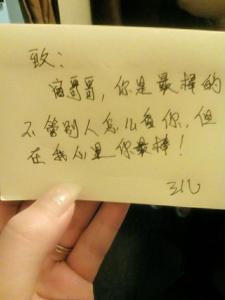 致：
富哥哥，你是最棒的
不管别人怎么看你，但
在我心里你最棒！